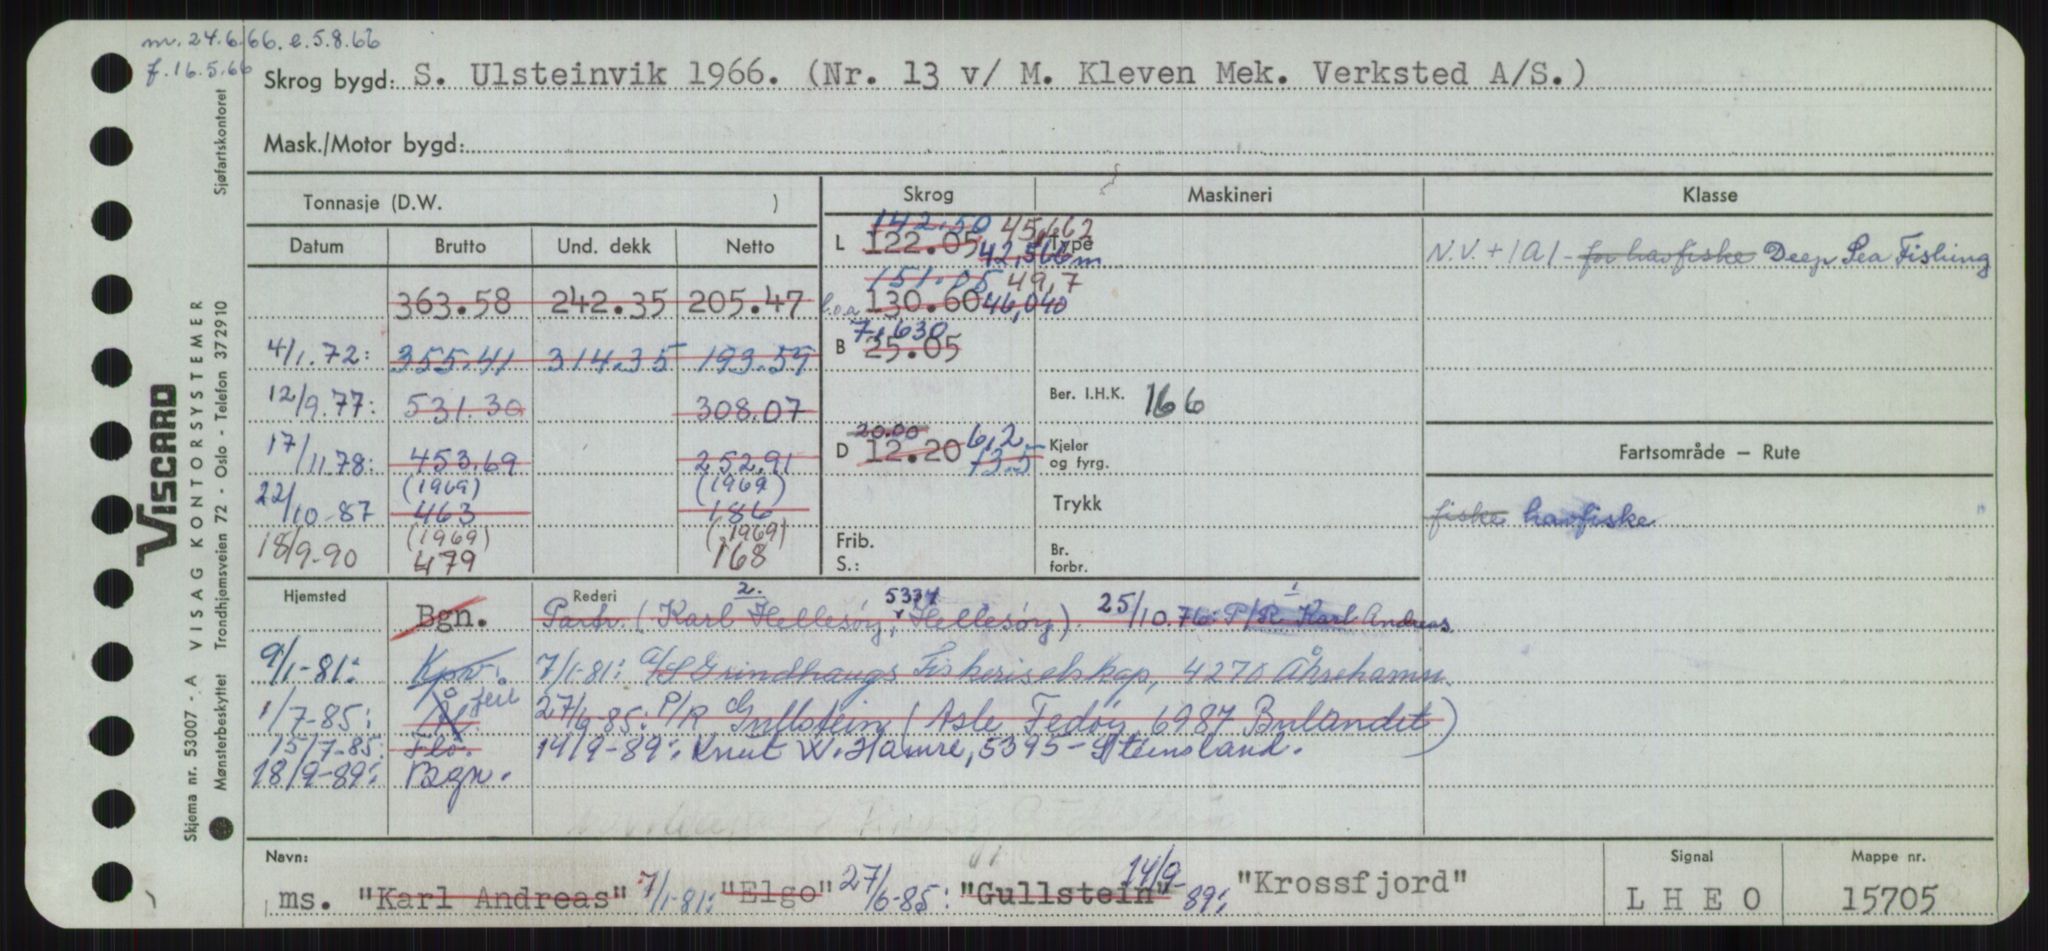 m. 24.6.66. e. 5.8.66
f. 16.5.66
Skrog bygd: S. Ulsteinvik 1966. (Nr. 13 v/ M. Kleven Mek. Verksted A/S.)
Mask./Motor bygd:
Tonnasje (D.W. )
Skrog Maskineri Klasse
Datum Brutto Und. dekk Netto
142.50 45,662
L 122.05 42,566 m Type
N.V. + 1A1 - for havfiske Deep Sea Fishing
363.58 242.35 205.47
151.05 49,7
l.o.a 130.60 46,040
4/1.72: 355.41 314.35 193.59
7,630
B 25.05
12/9.77: 531.30 308.07
Ber. I.H.K. 166
17/11.78: 453.69 252.91
20.00 6,2
D 12.20 13.5
Kjeler og fyrg.
Fartsområde – Rute
(1969) (1969)
22/10-87 463 186
Trykk
fiske havfiske
(1969) (1969)
18/9-90 479 168
Frib.
S.:
Br. forbr.
Hjemsted Rederi
2. 5334 1
Bgn. Partr. (Karl Hellesøy, Hellesøy). 25/10.76: P/R Karl Andreas
9/1-81: Kpv. 7/1-81: A/S Grindhaugs Fiskeriselskap, 4270 Åkrehamn.
feil
1/7-85: Ål. 27/6-85: P/R Gullstein (Asle Fedøy, 6987 Bulandet)
15/7-85 Flo. 14/9-89: Knut W. Hamre, 5395 - Steinsland.
18/9-89: Bgn.
Navn:
ms. "Karl Andreas" 7/1-81: "Elgo" 27/6-85: "Gullstein" 14/9-89: "Krossfjord"
Signal
L H E O
Mappe nr.
15705
VISCARD
VISAG KONTORSYSTEMER
Skjema nr. 53007 - A
Mønsterbeskyttet Trondhjemsveien 72 - Oslo - Telefon 372910 Sjøfartskontoret